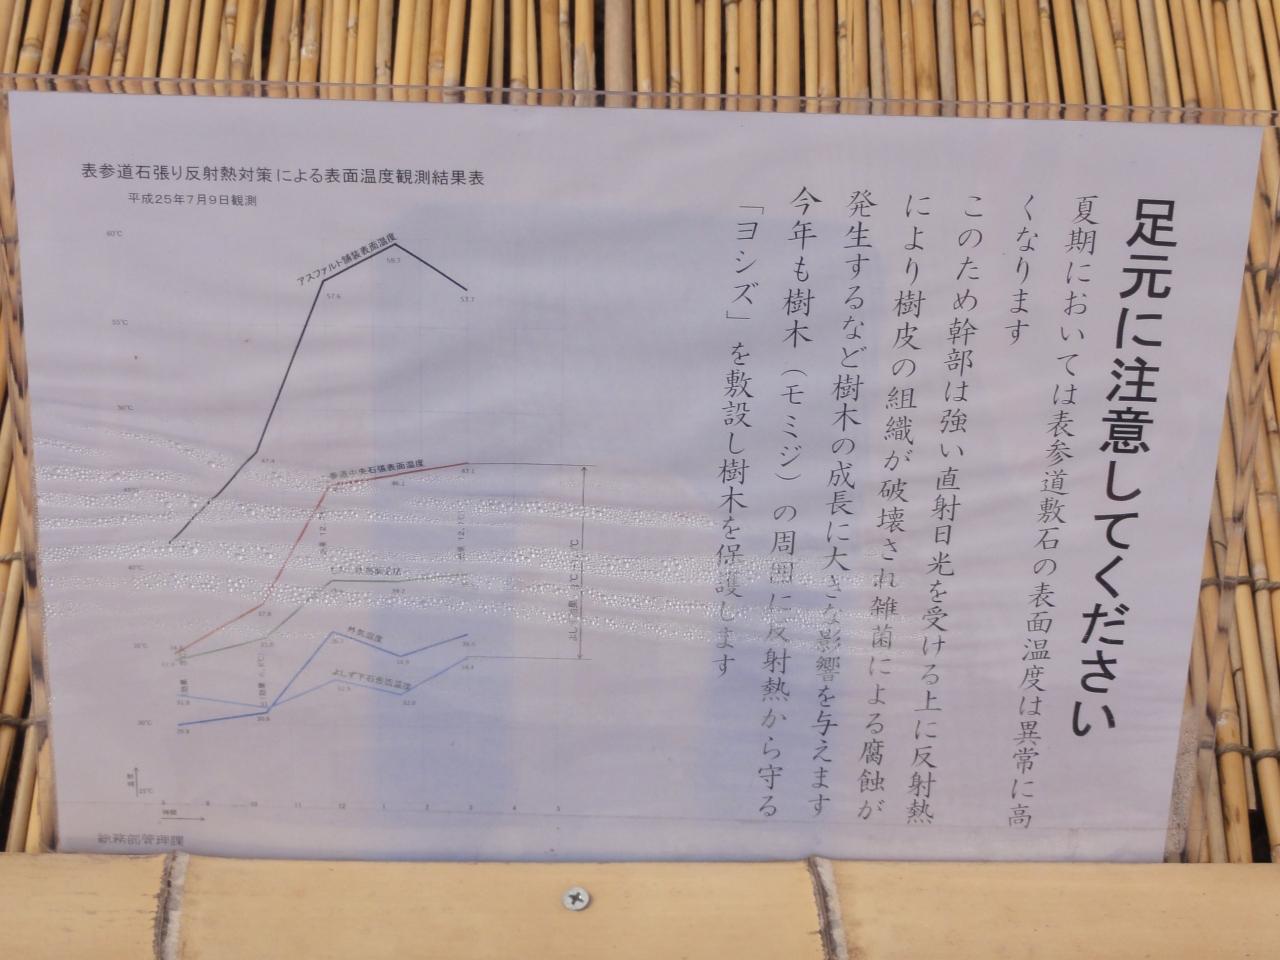 足元に注意してください
夏期においては表参道敷石の表面温度は異常に高
くなります
このため幹部は強い直射日光を受ける上に反射熱
により樹皮の組織が破壊され雑菌による腐蝕が
発生するなど樹木の成長に大きな影響を与えます
今年も樹木（モミジ）の周囲に反射熱から守る
「ヨシズ」を敷設し樹木を保護します
表参道石張り反射熱対策による表面温度観測結果表
平成25年7月9日観測
60℃
アスファルト舗装表面温度
59.7
57.6
53.7
55℃
50℃
47.4
参道中央石張表面温度
40℃
外気温度
よしず下石張面温度
30℃
25℃
8
9
10
11
12
1
2
3
4
5
時間
総務部管理課